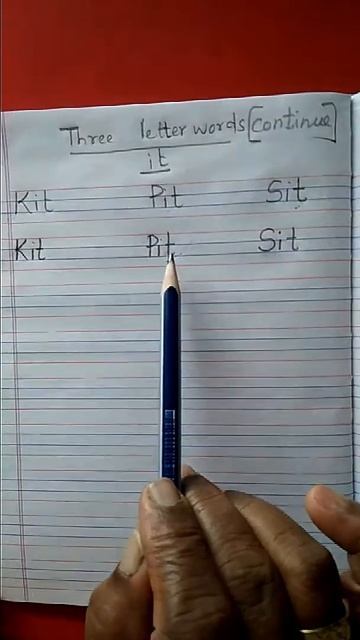 Three letter words [continue]
it
Kit Pit Sit
Kit Pit Sit